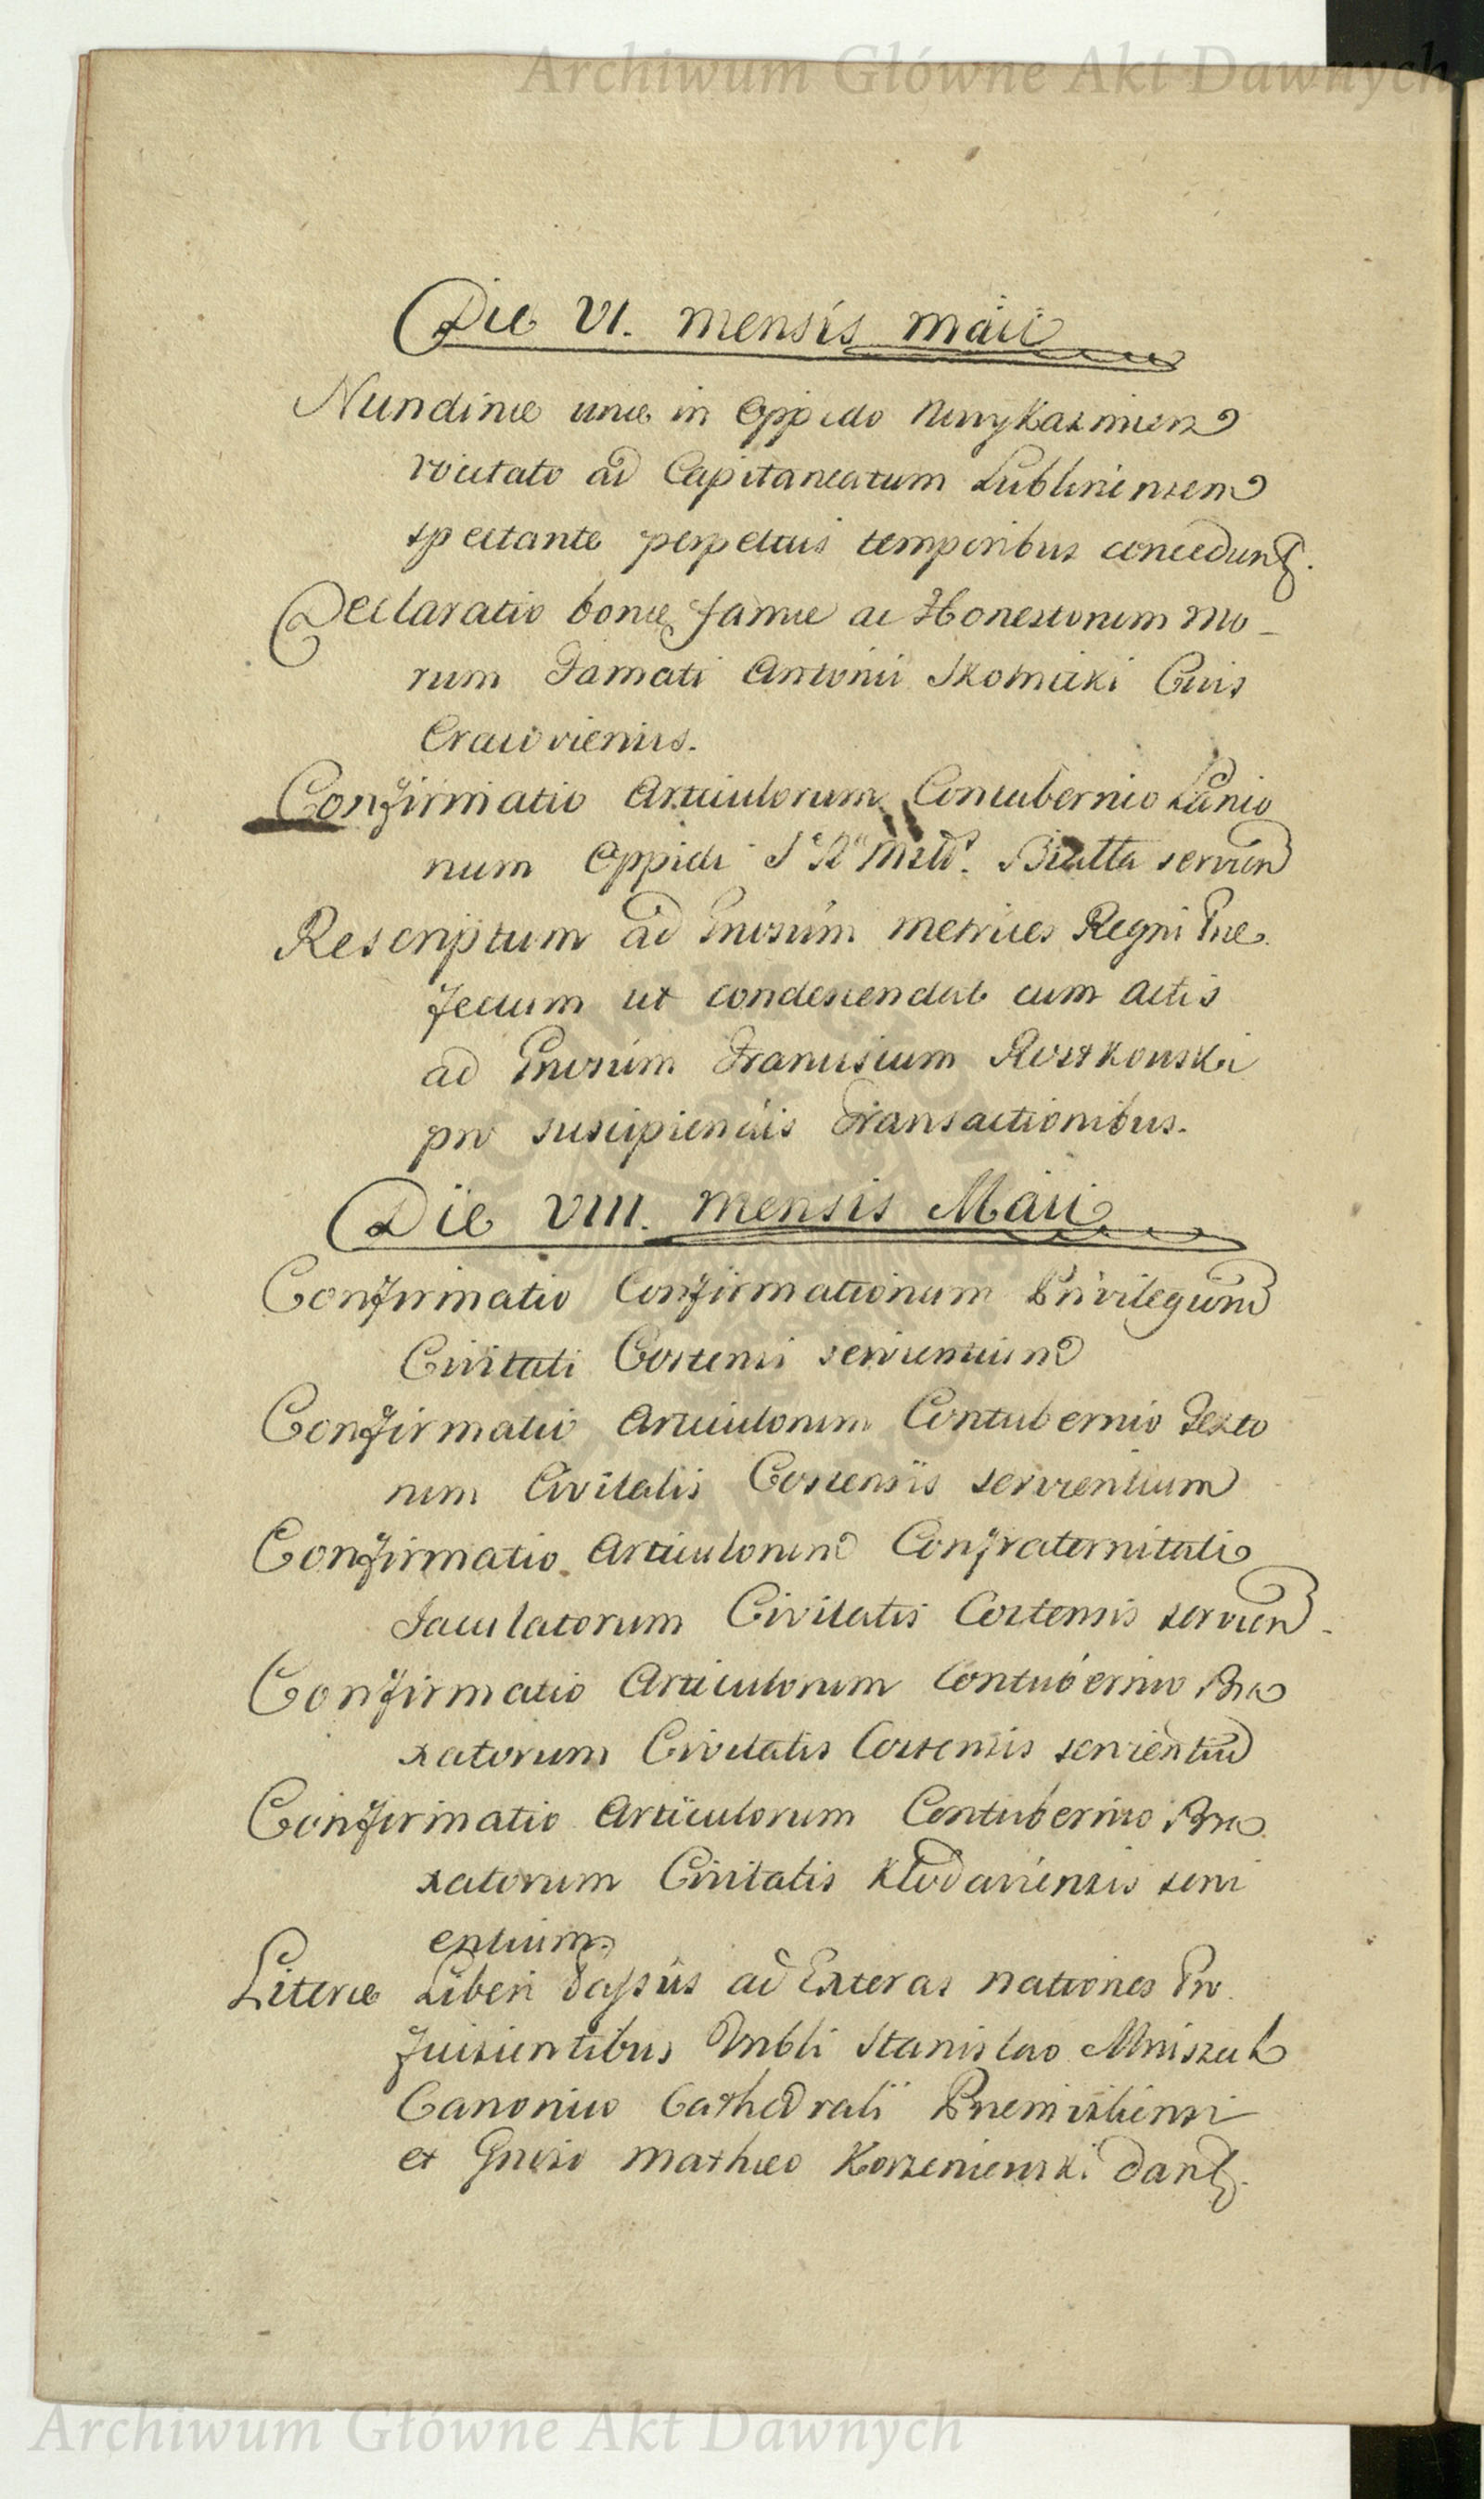 Archiwum Główne Akt Dawnych
Die VI. mensis maii
Nundinæ unæ in Oppido
vocitato ad Capitaneatum Lubliniensem
spectante perpetuis temporibus concedunt.
Declaratio bonæ famæ ac Honestorum mo-
rum Famati Antonii Skolnicki Civis
Cracoviensis.
Confirmatio Articulorum Contubernio Lanio
num Oppidi Biatta servien
Rescriptum ad Gnosum metrices Regni Præ
fectum ut condescendat cum actis
ad Gnosum Franciscum Roszkowski
pro suscipiendis Transactionibus.
Die VIII. mensis Maii
Confirmatio Confirmationum Privilegium
Civitati Costensi servientium
Confirmatio Articulorum Contubernio Texto
rum Civitatis Costensis servientium
Confirmatio Articulorum Confraternitati
Jaculatorum Civitatis Costensis servien.
Confirmatio Articulorum Contubernio Bra
xatorum Civitatis Costensis servientiu
Confirmatio Articulorum Contubernio Bra
xatorum Civitatis Klodaviensis servi
entium.
Literæ Liberi Passus ad Exteras nationes Pro
ficiscientibus Stanislao Mniszech
Canonico Cathedrali Premisliensi
et Gnoso Mathæo Korzeniewski dant.
Archiwum Główne Akt Dawnych